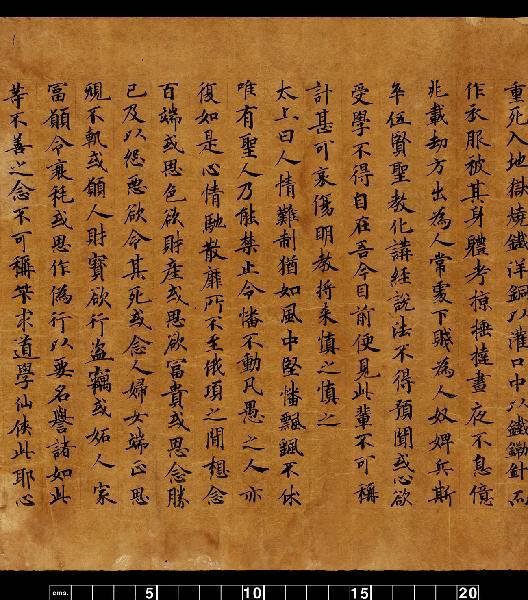 重死入地獄燒鐵洋銅以灌口中以鐵鋤針而
作衣服被其身體考掠捶撻晝夜不息億
兆載劫方出為人常處下賤為人奴婢兵斯
卒伍賢聖教化講經說法不得預聞或心欲
受學不得自在吾今目前便見此輩不可稱
計甚可哀傷明教將来慎之慎之
太上曰人情難制猶如風中竪幡飄颻不休
唯有聖人乃能禁止令幡不動凡愚之人亦
復如是心情馳散靡所不至俄頃之間想念
百端或思色欲財產或思欲富貴或思念勝
己及以怨惡欲令其死或念人婦女端正思
規不軌或願人財寶欲行盜竊或妬人家
富願令衰耗或思作偽行以要名譽諸如此
等不善之念不可稱筭求道學仙俠此耶心
cms. 5 10 15 20